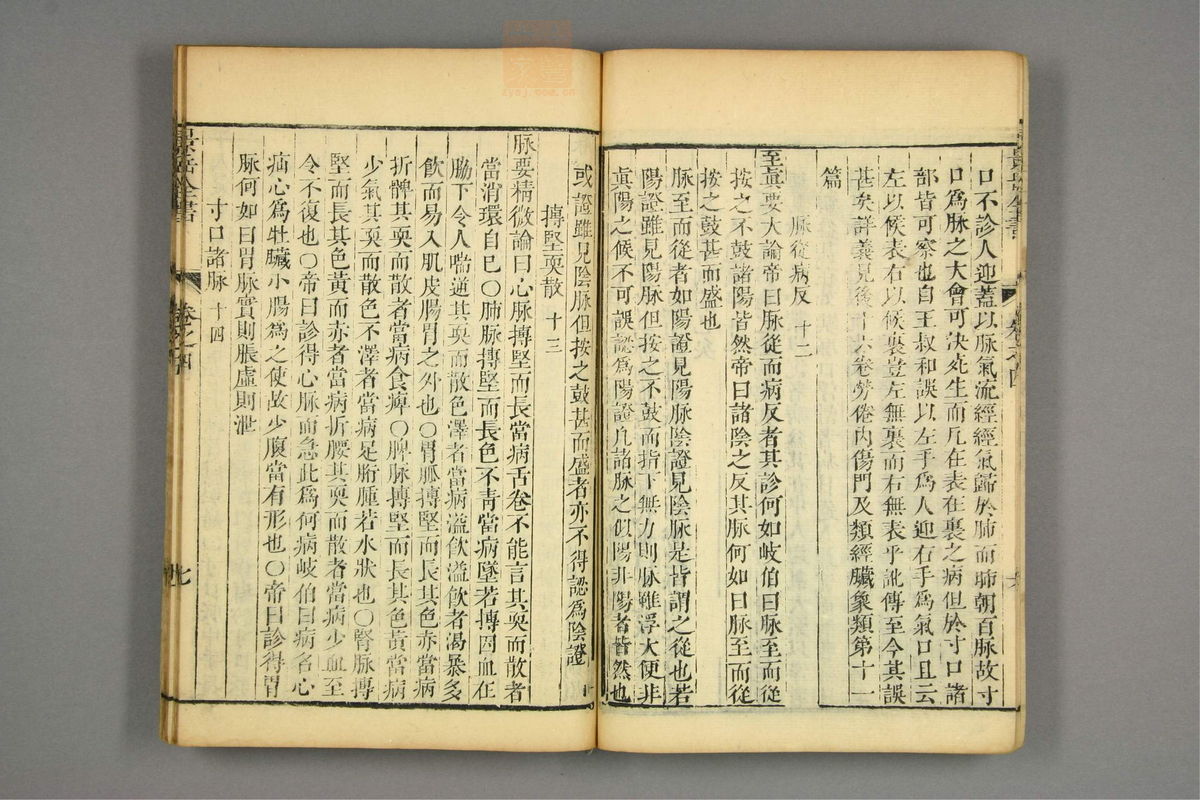 口不診人迎蓋以脉氣流經經氣歸於肺而肺朝百脉故寸
口爲脉之大會可決死生而凡在表在裏之病但於寸口諸
部皆可察也自王叔和誤以左手爲人迎右手爲氣口且云
左以候表右以候裏豈左無裏而右無表乎訛傳至今其誤
甚矣詳義見後十六卷勞倦內傷門及類經臟象類第十一
篇
脉從病反 十二
至眞要大論帝曰脉從而病反者其診何如岐伯曰脉至而從
按之不鼓諸陽皆然帝曰諸陰之反其脉何如曰脉至而從
按之鼓甚而盛也
脉至而從者如陽證見陽脉陰證見陰脉是皆謂之從也若
陽證雖見陽脉但按之不鼓而指下無力則脉雖浮大便非
眞陽之候不可誤認爲陽證凡諸脉之似陽非陽者皆然也
或證雖見陰脉但按之鼓甚而盛者亦不得認爲陰證
搏堅耎散 十三
脉要精微論曰心脉搏堅而長當病舌卷不能言其耎而散者
當消環自已〇肺脉搏堅而長色不靑當病墜若搏因血在
脇下令人喘逆其耎而散色澤者當病溢飮溢飮者渴暴多
飮而易入肌皮腸胃之外也〇胃脈搏堅而長其色赤當病
折髀其耎而散者當病食痺〇脾脉搏堅而長其色黃當病
少氣其耎而散色不澤者當病足胻腫若水狀也〇腎脉搏
堅而長其色黃而赤者當病折腰其耎而散者當病少血至
令不復也〇帝曰診得心脉而急此爲何病岐伯曰病名心
疝心爲牡臟小腸爲之使故少腹當有形也〇帝曰診得胃
脉何如曰胃脉實則脹虛則泄
寸口諸脉 十四
景岳全書
卷之四
七